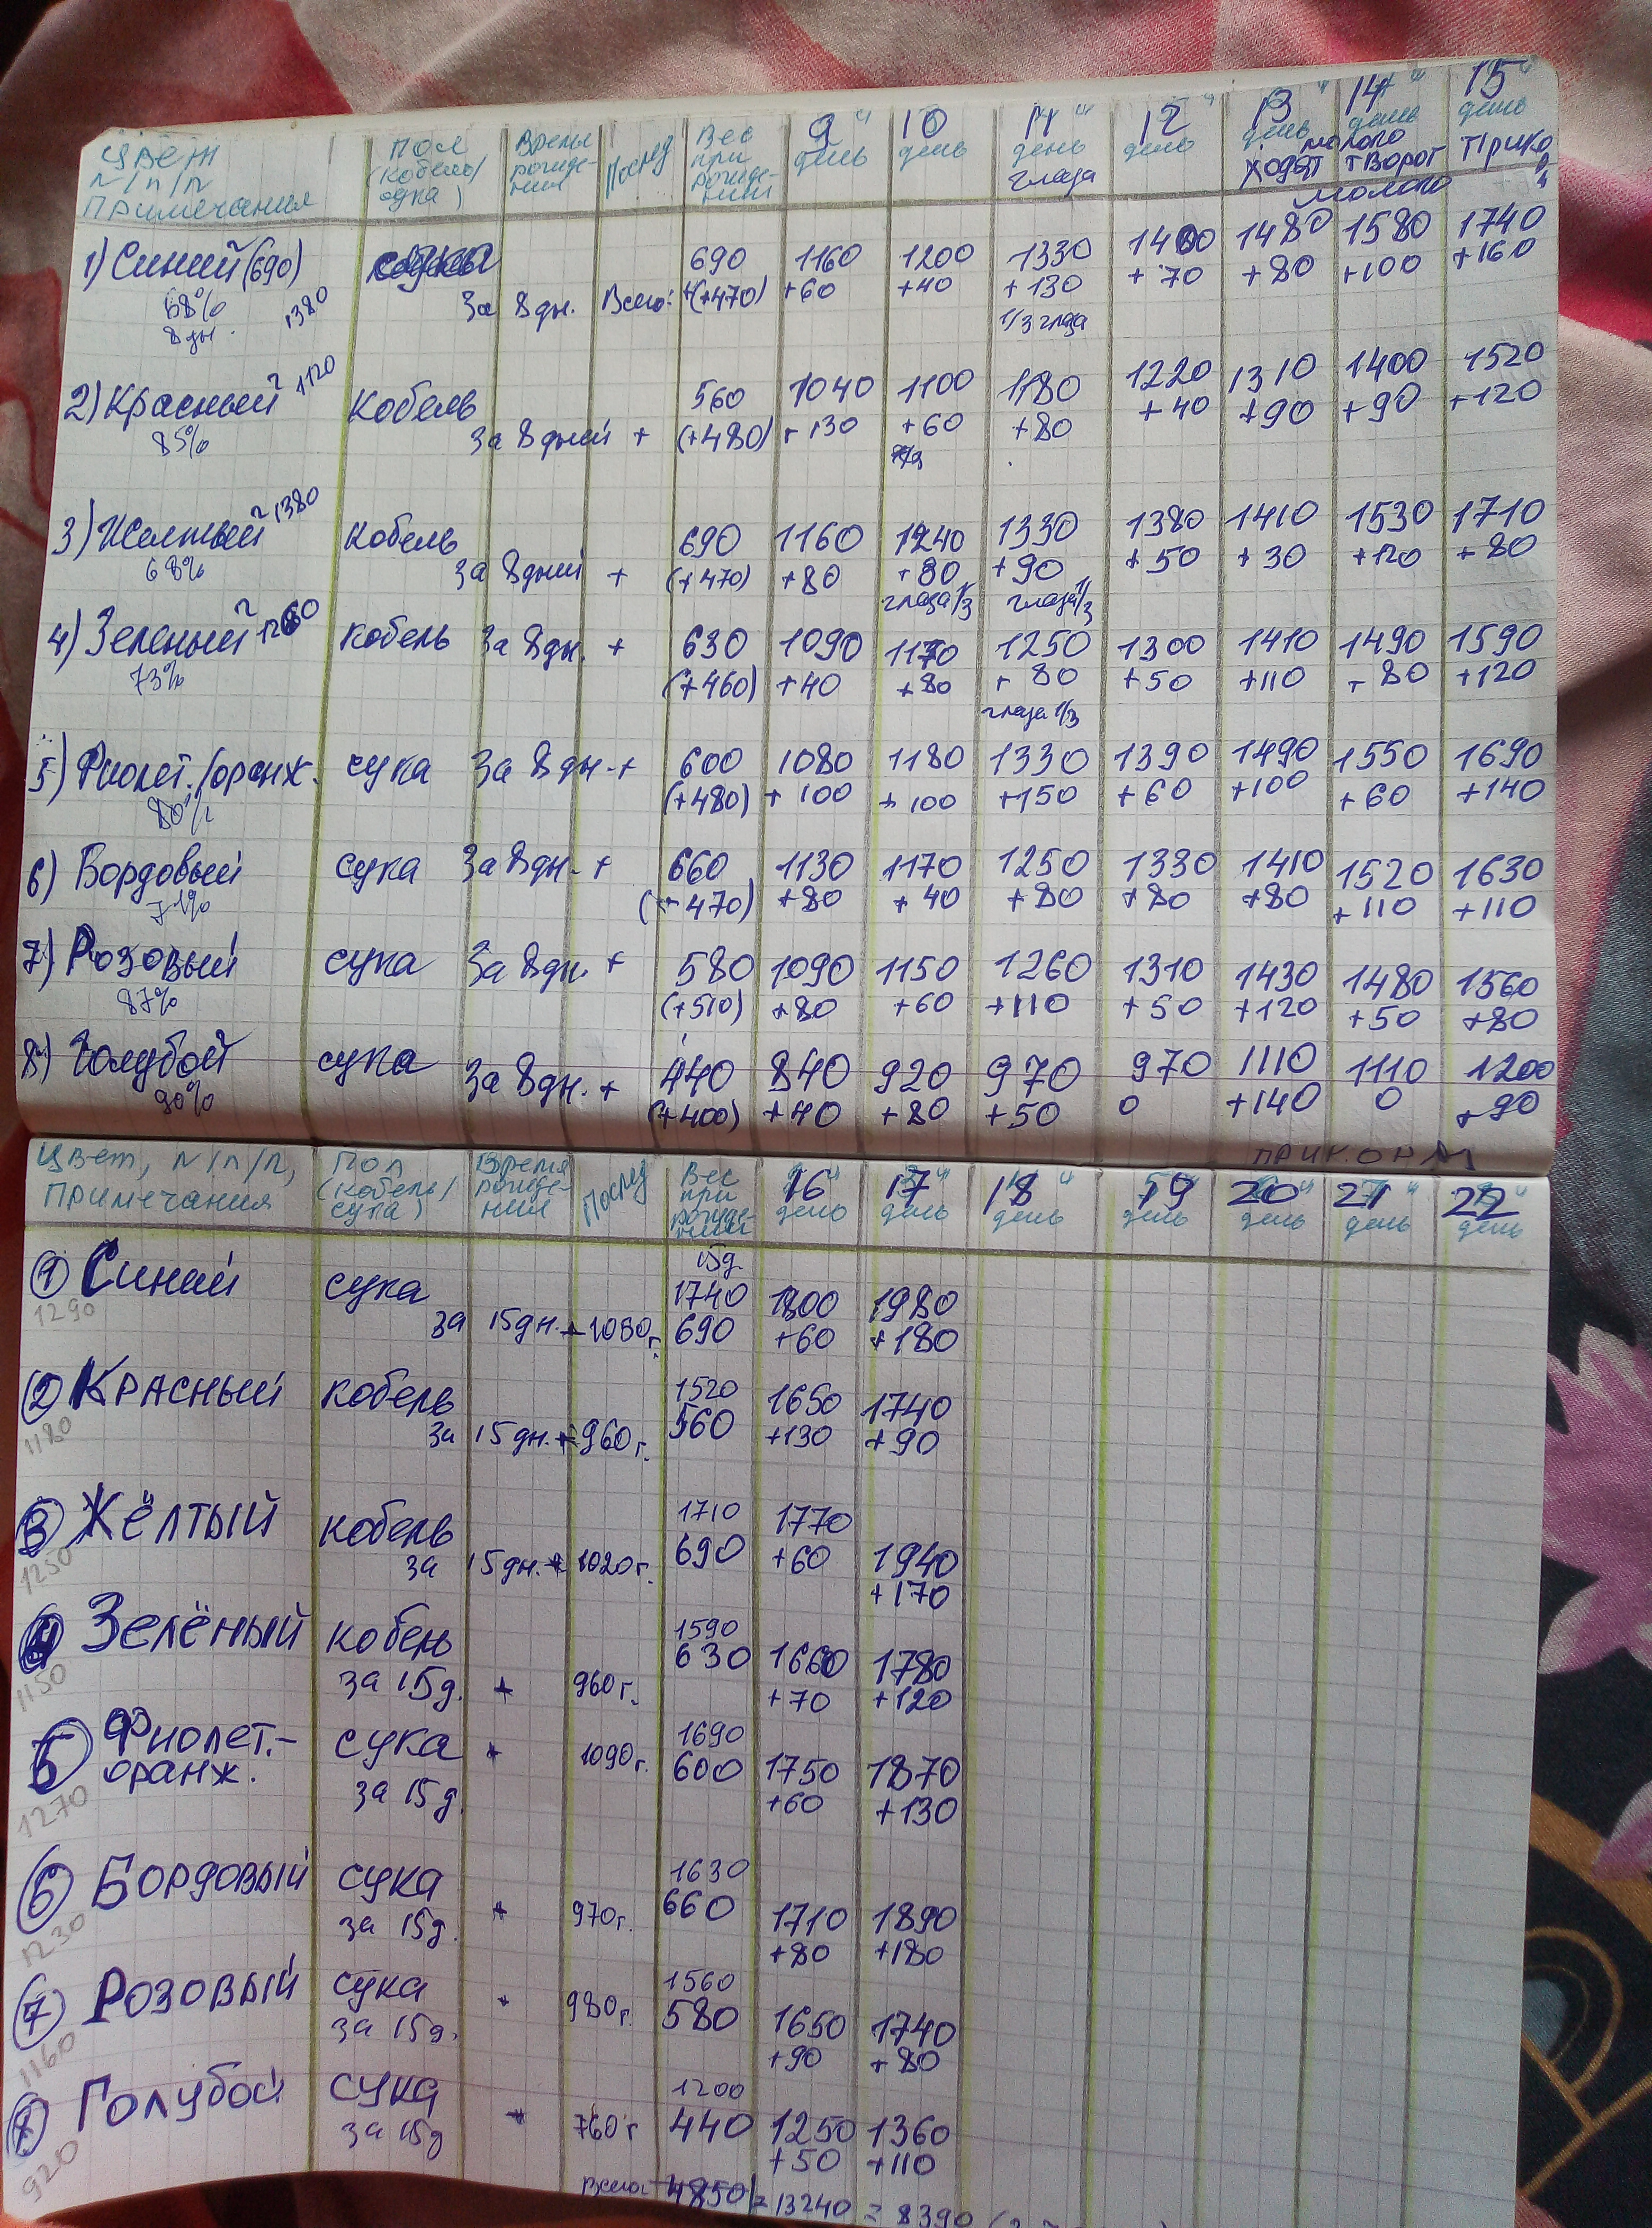 Цвет Пол Время Послед Вес 9 10 11 12 13 14 15
N/п/п (кобель/ рожде- при день день день день день день день
Примечания сука) ния рожде- глаза ходят молоко творог Прико
нии молоко
1) Синий (690) 690 1160 1200 1330 1400 1480 1580 1740
68% 1380 За 8 дн. Всего: +(+470) +60 +40 +130 +70 +80 +100 +160
8 дн. 1/3 глаза
2) Красный 1120 Кобель 560 1040 1100 1180 1220 1310 1400 1520
85% За 8 дней + (+480) +130 +60 +80 +40 +90 +90 +120
3) Желтый 1380 Кобель 690 1160 1240 1330 1380 1410 1530 1710
68% За 8 дней + (+470) +80 +80 +90 +50 +30 +120 +80
глаза 1/3 глаза 1/3
4) Зеленый 1260 Кобель За 8 дн. + 630 1090 1170 1250 1300 1410 1490 1590
73% (+460) +40 +80 +80 +50 +110 +80 +120
глаза 1/3
5) Фиолет./оранж. сука За 8 дн. + 600 1080 1180 1330 1390 1490 1550 1690
80% (+480) +100 +100 +150 +60 +100 +60 +140
6) Бордовый сука За 8 дн. + 660 1130 1170 1250 1330 1410 1520 1630
71% (+470) +80 +40 +80 +80 +80 +110 +110
7) Розовый сука За 8 дн. + 580 1090 1150 1260 1310 1430 1480 1560
87% (+510) +80 +60 +110 +50 +120 +50 +80
8) Голубой сука За 8 дн. + 440 840 920 970 970 1110 1110 1200
90% (+400) +40 +80 +50 0 +140 0 +90
ПРИКОРМ
Цвет, N/п/п, Пол Время Послед Вес 16 17 18 19 20 21 22
Примечания (кобель/ рожде- при день день день день день день день
сука) ния рожде-
нии
15д.
1) Синий сука 1740 1800 1980
1290 за 15 дн. + 1050 г. 690 +60 +180
2) Красный кобель 1520 1650 1740
1180 за 15 дн. + 960 г. 560 +130 +90
3) Жёлтый кобель 1710 1770
1250 за 15 дн. + 1020 г. 690 +60 1940
+170
4) Зелёный кобель 1590
630 1660 1780
1150 за 15 д. + 960 г. +70 +120
5) Фиолет.- сука + 1090 г. 1690
оранж. 600 1750 1870
1270 за 15 д. +60 +130
6) Бордовый сука 1630
1230 за 15 д. + 970 г. 660 1710 1890
+80 +180
7) Розовый сука 1560
1160 за 15 д. + 980 г. 580 1650 1740
+90 +80
8) Голубой сука 1200
920 за 15 д + 760 г 440 1250 1360
+50 +110
Всего: 4850 13240 = 8390